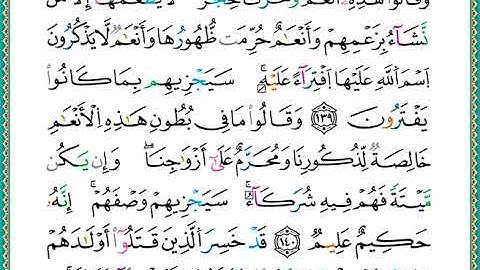 وَقَالُوا هَٰذِهِ أَنْعَٰمٌ وَحَرْثٌ حِجْرٌ لَّا يَطْعَمُهَا إِلَّا مَن
نَّشَآءُ بِزَعْمِهِمْ وَأَنْعَٰمٌ حُرِّمَتْ ظُهُورُهَا وَأَنْعَٰمٌ لَّا يَذْكُرُونَ
اسْمَ اللَّهِ عَلَيْهَا افْتِرَآءً عَلَيْهِ ۚ سَيَجْزِيهِم بِمَا كَانُوا
يَفْتَرُونَ ﴿١٣٩﴾ وَقَالُوا مَا فِي بُطُونِ هَٰذِهِ الْأَنْعَٰمِ
خَالِصَةٌ لِّذُكُورِنَا وَمُحَرَّمٌ عَلَىٰٓ أَزْوَٰجِنَا ۖ وَإِن يَكُن
مَّيْتَةً فَهُمْ فِيهِ شُرَكَآءُ ۚ سَيَجْزِيهِمْ وَصْفَهُمْ ۚ إِنَّهُ
حَكِيمٌ عَلِيمٌ ﴿١٤٠﴾ قَدْ خَسِرَ الَّذِينَ قَتَلُوٓا أَوْلَٰدَهُمْ